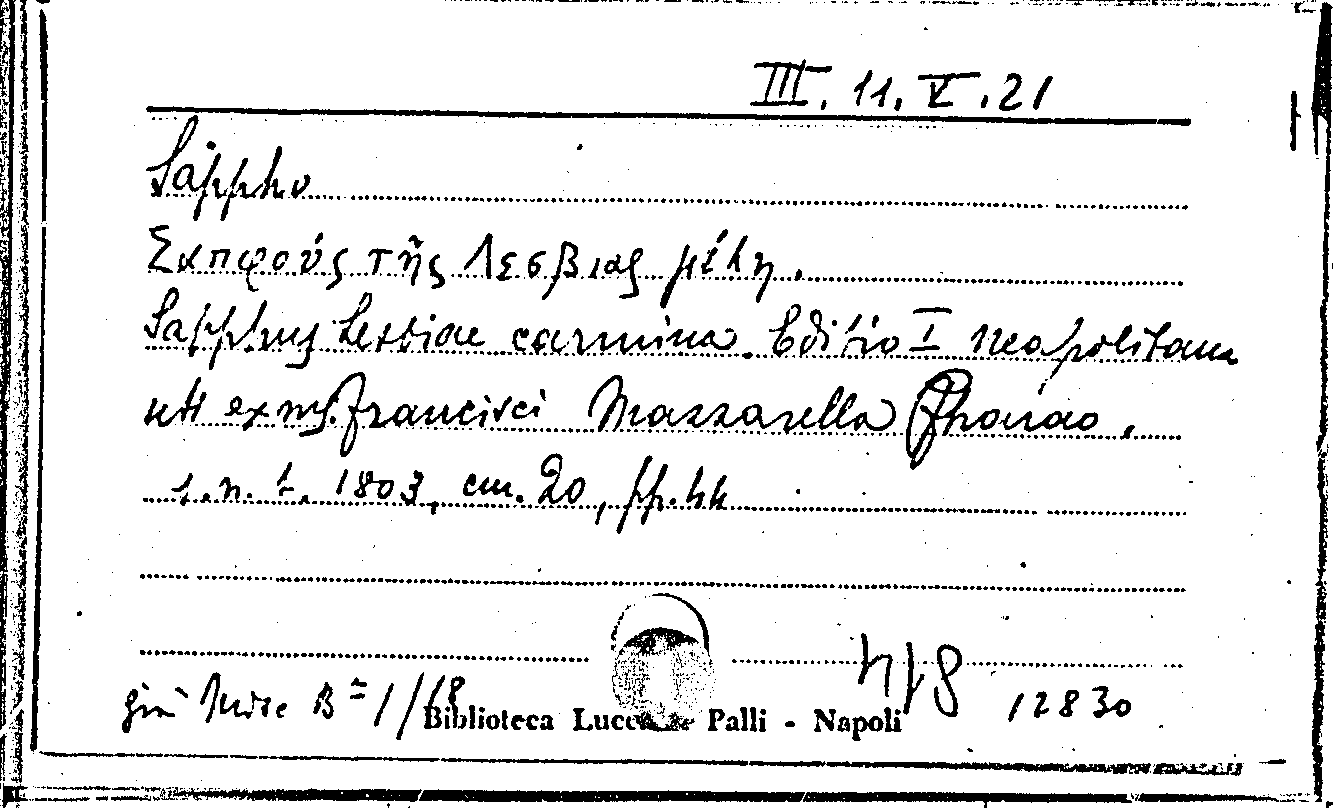 III. 11. V. 21
Sappho
Σαπφοῦς τῆς Λεσβιας μέλη.
Sapphus Lesbiae carmina. Editio I Neapolitana
ex ms. Francisci Mazzarella Pharao.
s. n. t. 1803, cm. 20, pp. 44
già Misc B= 1/18
Biblioteca Lucchesi Palli - Napoli
12830